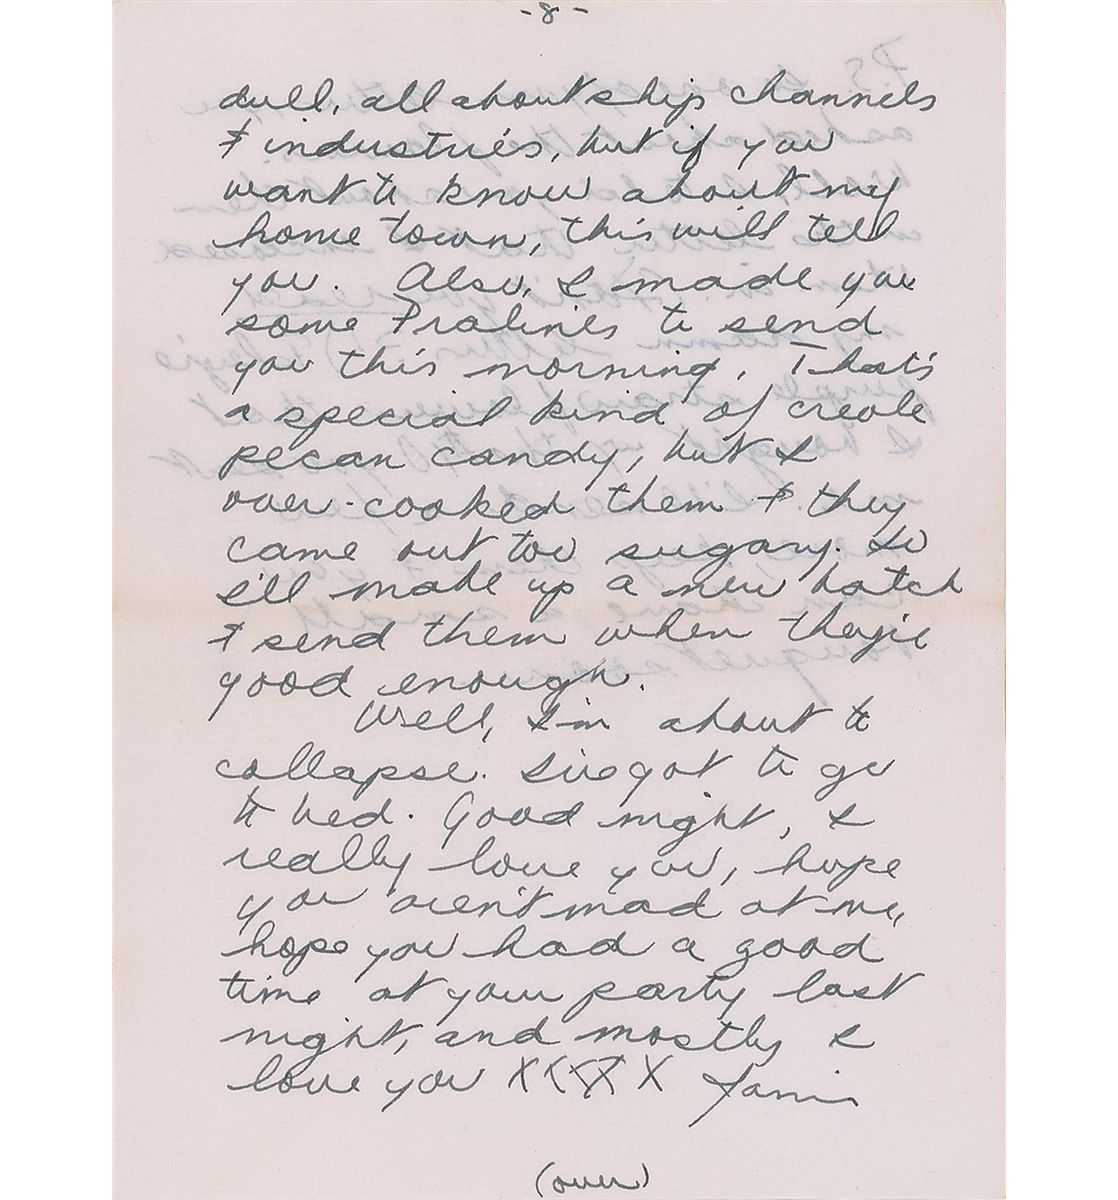 -8-
dull, all about ship channels
& industries, but if you
want to know about my
home town, this will tell
you. Also, I made you
some Pralines to send
you this morning. That's
a special kind of creole
pecan candy, but I
over-cooked them & they
came out too sugary. So
I'll make up a new batch
& send them when they're
good enough.
Well, I'm about to
collapse. I've got to go
to bed. Good night, I
really love you, hope
you aren't mad at me,
hope you had a good
time at your party last
night, and mostly I
love you XXXXX Janis
(over)